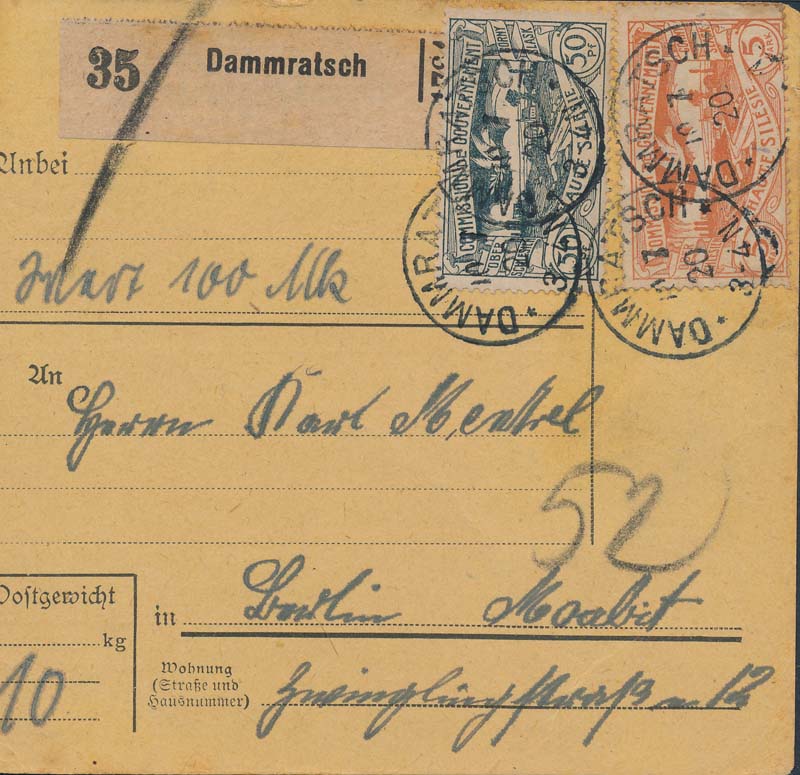 35 Dammratsch
50 PF
COMMISSION DE GOUVERNEMENT
HAUTE SILESIE
5 MARK
GOUVERNEMENT
HAUTE SILESIE
DAMMRATSCH
20
3-4N
Anbei
Wert 100 Mk
An
Herrn Karl Mentzel
52
Postgewicht
kg
10
in Berlin Moabit
Wohnung
(Straße und
Hausnummer)
Zwinglistraße 12